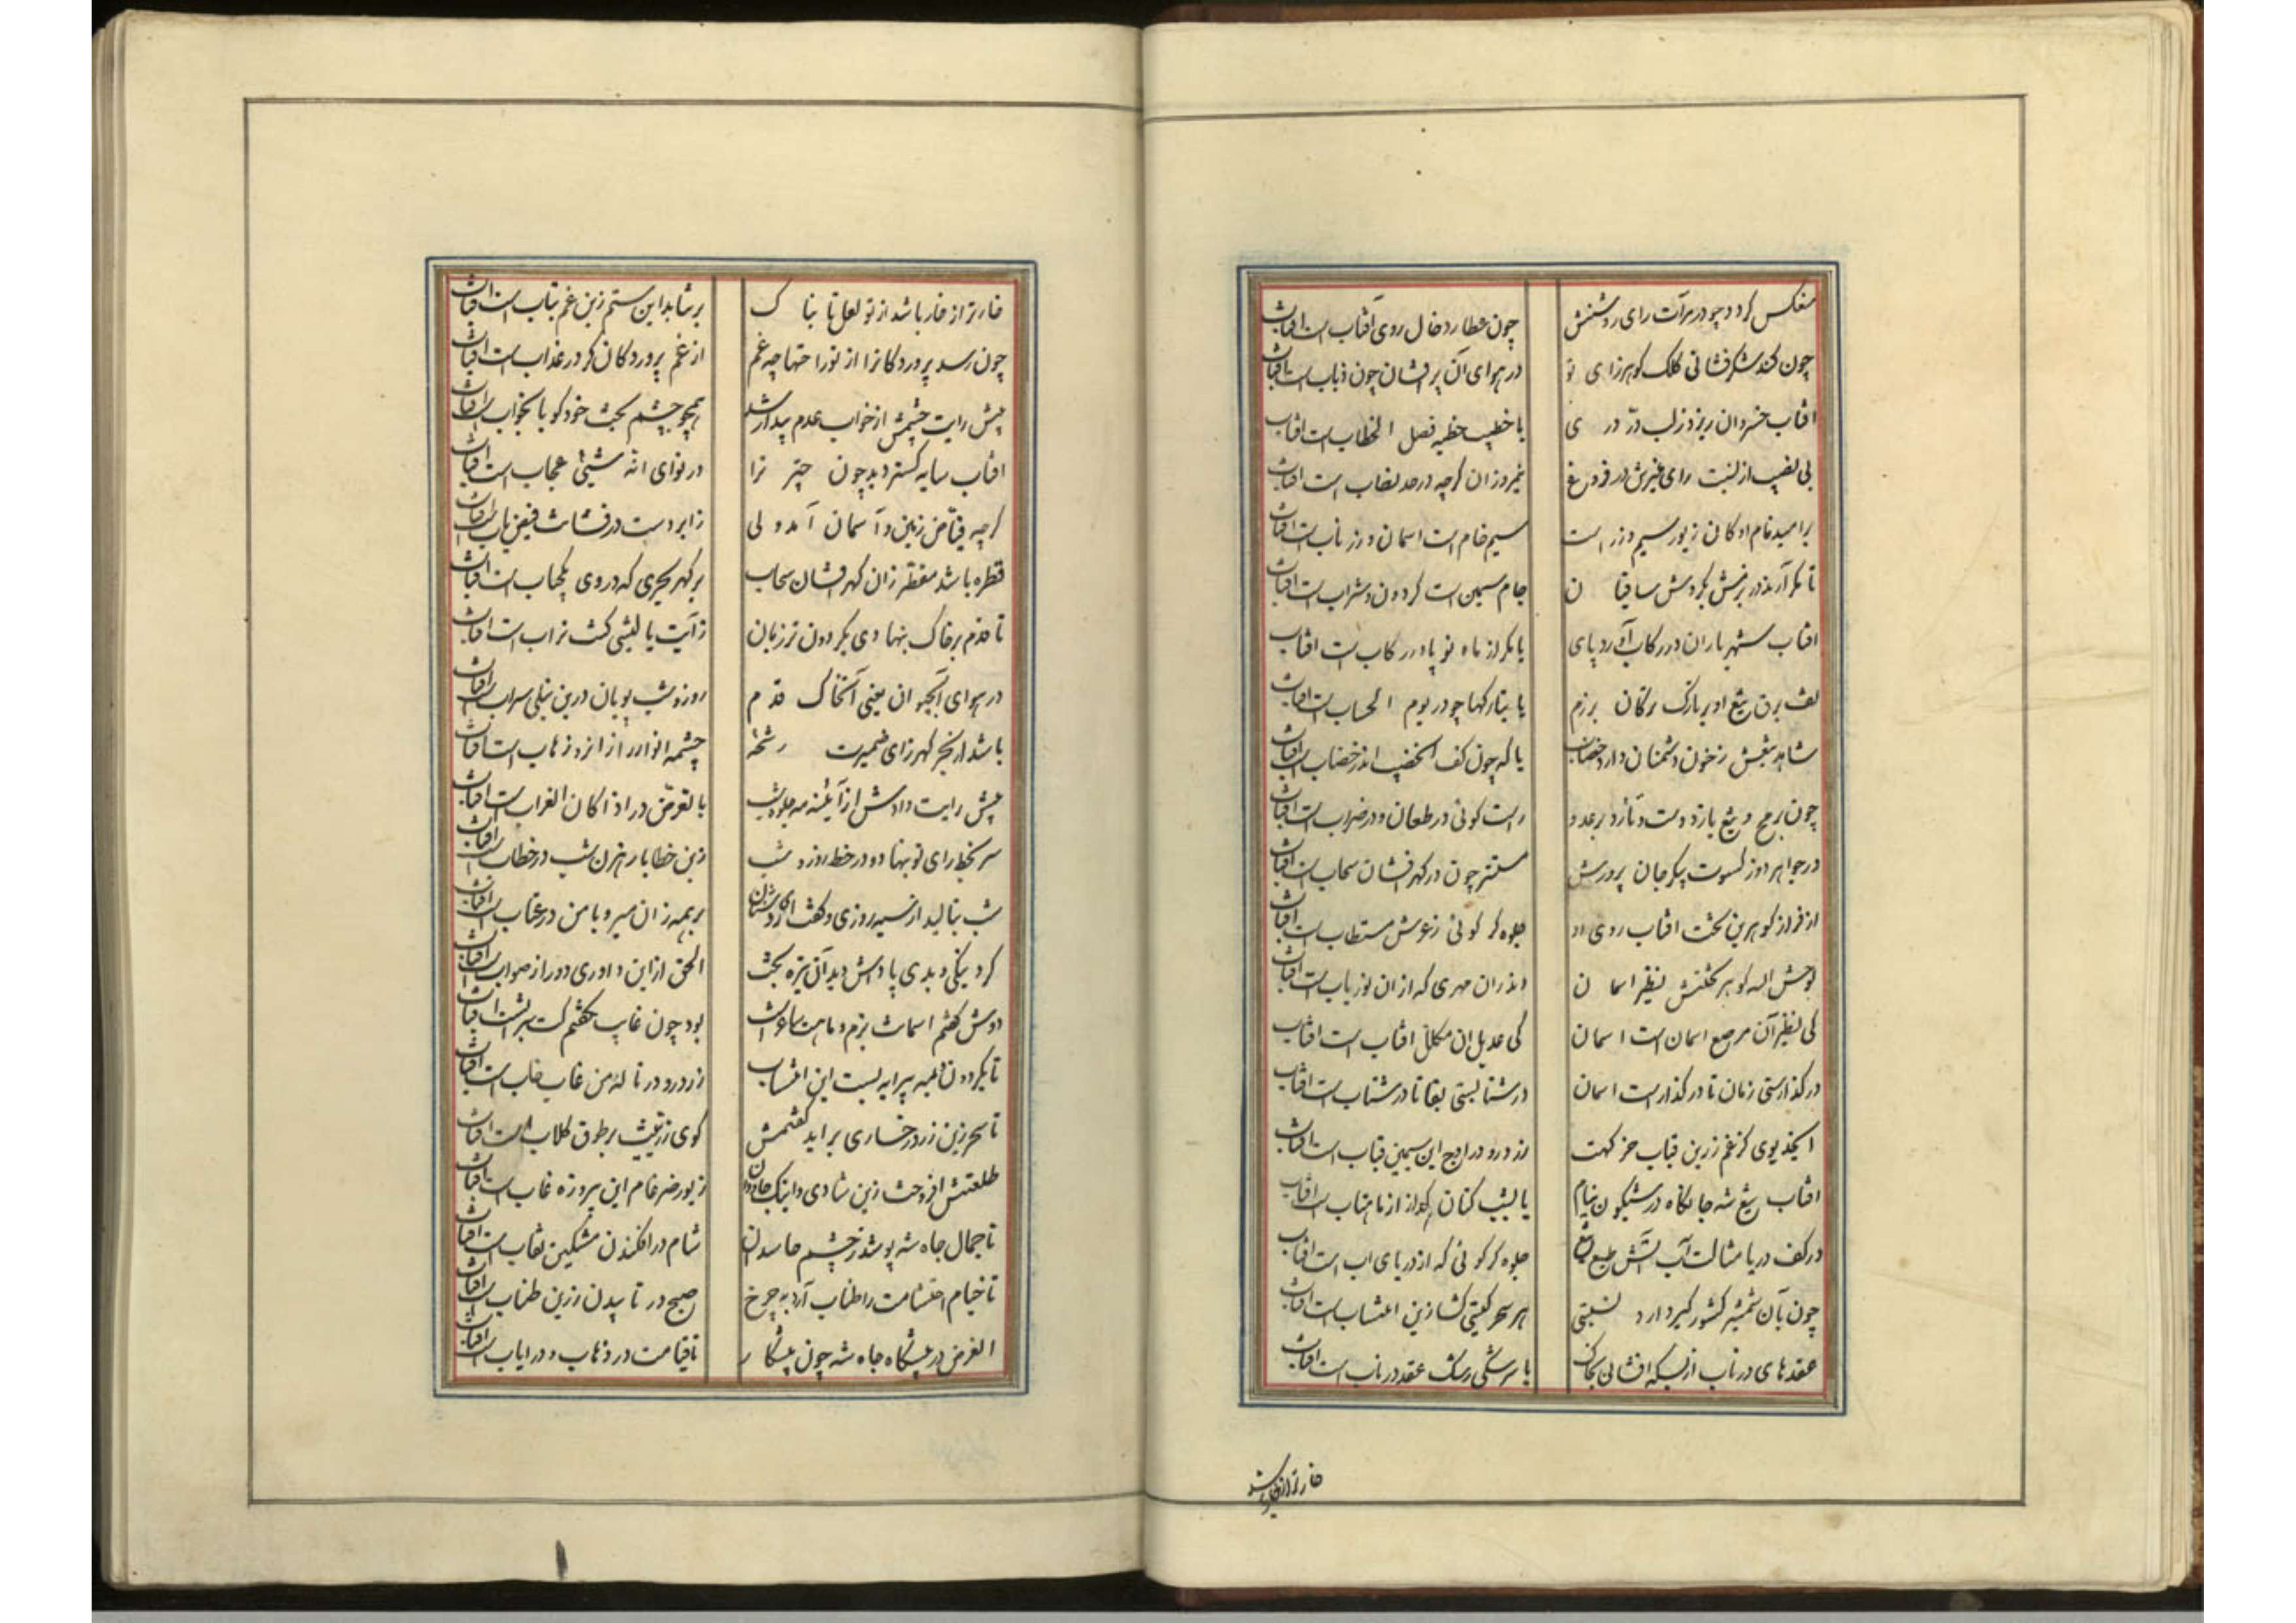 منعکس کردد چو در مرآت رای روشنش چون عطارد خال روی آفتاب است افتاب
چون کند شکرفشانی کلک کوهرزای تو در هوای آن پرافشان چون ذباب است افتاب
افتاب خسروان ریزد ز لب در دری یا خطیب خطبه فصل الخطاب است افتاب
بی نصیب از نسبت رای منیرش در فروغ نیمروزان کرچه در حد نصاب است افتاب
بر امید نام او کان زیور سیم و زر است سیم خام است اسمان و زر ناب است افتاب
تا مکر آرند در بزمش بکردش ساقیان جام سیمین است کردون و شراب است افتاب
افتاب شهریاران در رکاب آورد پای یا مکر از ماه نو پا در رکاب است افتاب
تف برق تیغ او بر تارک ترکان برزم یا بتارکها چو در یوم الحساب است افتاب
شاهد تیغش ز خون دشمنان دارد خضاب یا که چون کف الخضیب اندر خضاب است افتاب
چون برمح و تیغ یازد دست و تازد بر عدو راست کوئی در طعان و در ضراب است افتاب
در جواهر دوز کسوت پیکر جان پرورش مستتر چون در کهرفشان سحاب است افتاب
از فراز کوهرین تخت افتاب روی او جلوه کر کوئی ز عرش مستطاب است افتاب
لوحش الله کوهر تختش نظیر اسمان اندران مهری که از ان نوریاب است افتاب
کی نظیر آن مرصع اسمان است اسمان کی عدیل ان مکلل افتاب است افتاب
در کذارستی زمان تا در کذار است اسمان در شتابستی بقا تا در شتاب است افتاب
ایخدیوی کز غم زرین قباب خرکهت زرد رو در اوج این سیمین قباب است افتاب
افتاب تیغ شه جا کاه در شبکون نیام یا بشب کتان کداز از ماهتاب است افتاب
در کف دریا مثالت آب آتش طبع تیغ جلوه کر کوئی که از دریای اب است افتاب
چون بآن شمشیر کشورکیر دارد نسبتی هر سحر کیتی کشا زین انتساب است افتاب
عقدهای در ناب از بسکه افشانی بخاک با سرشکی رشک عقد در ناب است افتاب
خارتر از خار باشد
خارتر از خار باشد از تو لعل تابناک بر نتابد این ستم زین غم بتاب است افتاب
چون رسد پروردکانرا از تو راحتها چه غم از غم پروردکان کر در عذاب است افتاب
پیش رایت چشمش از خواب عدم بیدار شد همچو چشم بخت خود کو یا بخواب است افتاب
افتاب سایه کستر دید چون چتر ترا در نوای انه شیئی عجاب است افتاب
کرچه فیاض زمین و آسمان آمد ولی ز ابر دست درفشانت فیض یاب است افتاب
قطره باشد مقطر زان کهرفشان سحاب بر کهر بحری که در وی یکحباب است افتاب
تا قدم بر خاک بنهادی بکردون تر زبان ز آیت یا لیتنی کنت تراب است افتاب
در هوای آبحیوان یعنی آنخاک قدم روز و شب پویان درین نیلی سراب است افتاب
باشد از بحر کهرزای ضمیرت رشحه چشمه انوار از انرو ذهاب است افتاب
پیش رایت دادش از آئینه مه جلوه شب با تعرض در اذا کان الغراب است افتاب
سر بخط رای تو بنهاده در خط روز و شب زین خطا با رهزن شب در خطاب است افتاب
شب بنالید از سیه روزی و کفت ای روشنان بر همه زان میر و با من در عتاب است افتاب
کرد نیکی و بدی پاداش دید آن تیره بخت الحق از این داوری دور از صواب است افتاب
دوش کفتم اسمانت بزم و ماهت ساغر است بود چون غایب نکفتم کت شراب است افتاب
تا بکردون نامیه پیرایه بست این انتساب زرد رو در ناله من غاب خاب است افتاب
تا سحر زین زرد رخساری براید کفتمش کوی زرینت بر طوق کلاب است افتاب
طلعتش افروخت زین شادی و اینک جاودان زیور ضرغام این پیروزه غاب است افتاب
تا جمال جاه شه پوشد ز چشم حاسدان شام در افکندن مشکین نقاب است افتاب
تا خیام احتشامت را طناب آرد به چرخ صبح در تابیدن زرین طناب است افتاب
الغرض در پیشکاه جاه شه چون پیشکار تا قیامت در ذهاب و در ایاب است افتاب